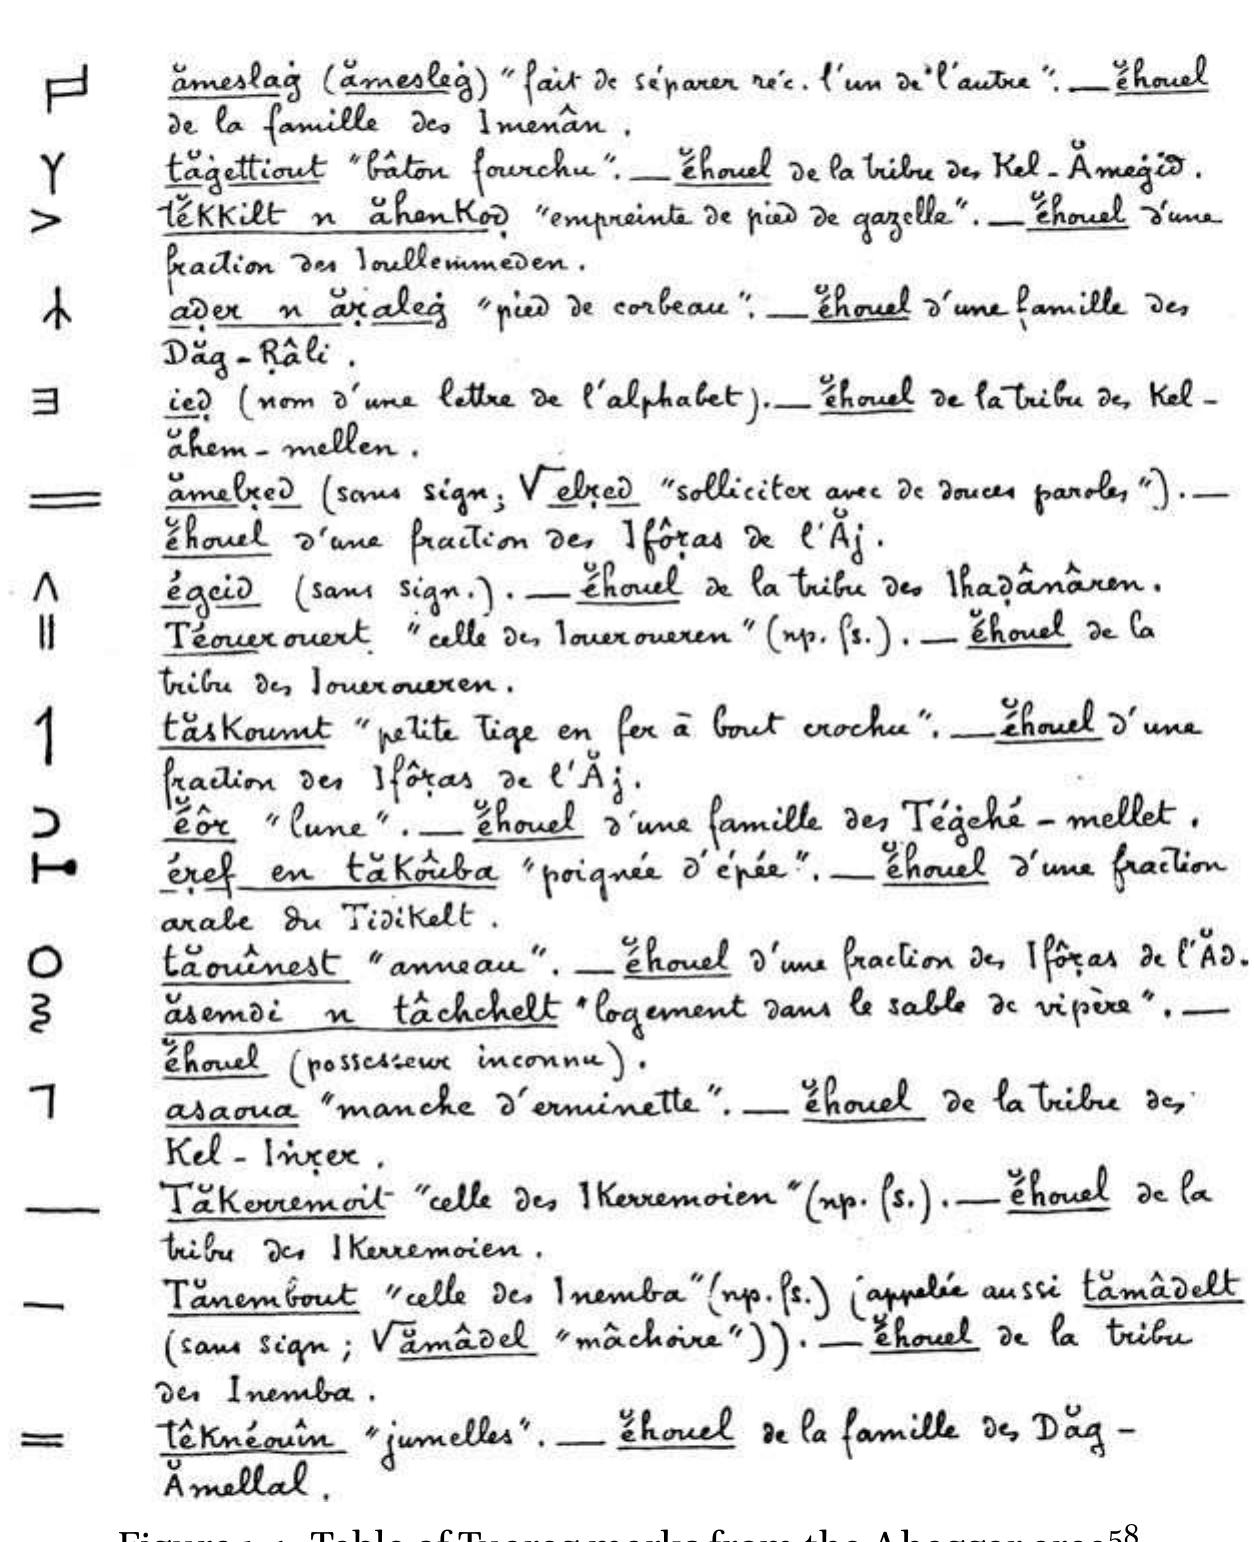 ămeslaġ (ămesleġ) "fait de séparer réc. l'un de l'autre". — ĕ́houel
de la famille des Imenân.
tăġettiout "bâton fourchu". — ĕ́houel de la tribu des Kel-Ămeġid.
tĕ́kkilt n ăhenkoḍ "empreinte de pied de gazelle". — ĕ́houel d'une
fraction des Ioullemmeden.
aḍer n ăṛaleġ "pied de corbeau". — ĕ́houel d'une famille des
Dăg-Ṛâli.
ieḍ (nom d'une lettre de l'alphabet). — ĕ́houel de la tribu des Kel-
ăhem-mellen.
ămelṛed (sans sign; √ elṛed "solliciter avec de douces paroles"). —
ĕ́houel d'une fraction des Ifôṛas de l'Ăj.
égeid (sans sign.). — ĕ́houel de la tribu des Ihaḍânâren.
Téouerouert "celle des Ioueroueren" (np. fs.). — ĕ́houel de la
tribu des Ioueroueren.
tăskoumt "petite tige en fer à bout crochu". — ĕ́houel d'une
fraction des Ifôṛas de l'Ăj.
ĕ́ôr "lune". — ĕ́houel d'une famille des Tégehé-mellet.
éṛef en tăkôuba "poignée d'épée". — ĕ́houel d'une fraction
arabe du Tidikelt.
tăouînest "anneau". — ĕ́houel d'une fraction des Ifôṛas de l'Ăd.
ăsemdi n tâchchelt "logement dans le sable de vipère". —
ĕ́houel (possesseur inconnu).
asaoua "manche d'erminette". — ĕ́houel de la tribu des
Kel-Inṛer.
Tăkerremoit "celle des Ikerremoien" (np. fs.). — ĕ́houel de la
tribu des Ikerremoien.
Tănembout "celle des Inemba" (np. fs.) (appelée aussi tămâdelt
(sans sign; √ ămâdel "mâchoire")). — ĕ́houel de la tribu
des Inemba.
têknéouîn "jumelles". — ĕ́houel de la famille des Dăg-
Ămellal.
Table of Tuareg marks from the Ahaggar area58